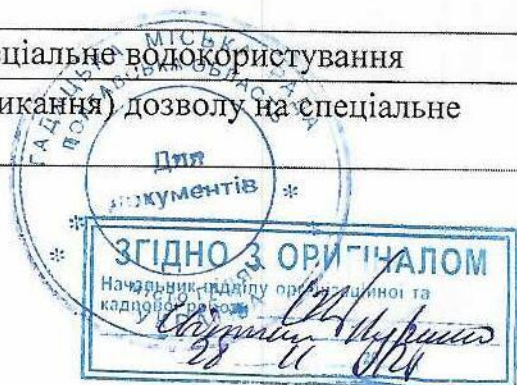 ціальне водокористування
икання) дозволу на спеціальне
ГАДЯЦЬКА МІСЬКА РАДА
ПОЛТАВСЬКА ОБЛАСТЬ
Для
документів
ЗГІДНО З ОРИГІНАЛОМ
Начальник відділу організаційної та
кадрової роботи
28 11